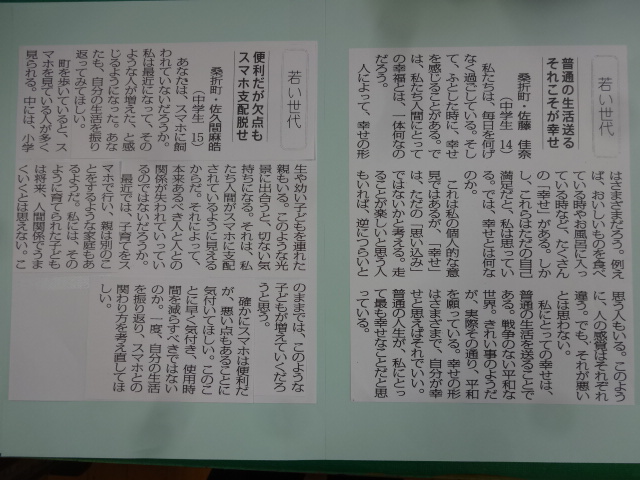 若い世代
普通の生活送る
それこそが幸せ
桑折町・佐藤 佳奈
(中学生 14)
私たちは、毎日を何げ
なく過ごしている。そし
て、ふとした時に、幸せ
を感じることがある。で
は、私たち人間にとって
の幸福とは、一体何なの
だろう。
人によって、幸せの形
はさまざまだろう。例え
ば、おいしいものを食べ
ている時やお風呂に入っ
ている時など、たくさん
の「幸せ」がある。しか
し、これらはただの自己
満足だと、私は思ってい
る。では、幸せとは何な
のか。
これは私の個人的な意
見ではあるが、「幸せ」
は、ただの「思い込み」
ではないかと考える。走
ることが楽しいと思う人
もいれば、逆につらいと
思う人もいる。このよう
に、人の感覚はそれぞれ
違う。でも、それが悪い
とは思わない。
私にとっての幸せは、
普通の生活を送ることで
ある。戦争のない平和な
世界。きれい事のようだ
が、実際その通り、平和
を願っている。幸せの形
はさまざまで、自分が幸
せと思えばそれでいい。
普通の人生が、私にとっ
て最も幸せなことだと思
っている。
若い世代
便利だが欠点も
スマホ支配脱せ
桑折町・佐久間麻皓
(中学生 15)
あなたは、スマホに飼
われていないだろうか。
私は最近になって、その
ような人が増えた、と感
じるようになった。あな
たも、自分の生活を振り
返ってみてほしい。
町を歩いていると、ス
マホを見ている人が多く
見られる。中には、小学
生や幼い子どもを連れた
親もいる。このような光
景に出合うと、切ない気
持ちになる。それは、私
たち人間がスマホに支配
されているように見える
からだ。それによって、
本来あるべき人と人との
関係が失われていってい
るのではないだろうか。
最近では、子育てをス
マホで行い、親は別のこ
とをするような家庭もあ
るようだ。私には、その
ように育てられた子ども
は将来、人間関係でうま
くいくとは思えない。こ
のままでは、このような
子どもが増えていくだろ
うと思う。
確かにスマホは便利だ
が、悪い点もあることに
気付いてほしい。このこ
とに早く気付き、使用時
間を減らすべきではない
のか。一度、自分の生活
を振り返り、スマホとの
関わり方を考え直してほ
しい。